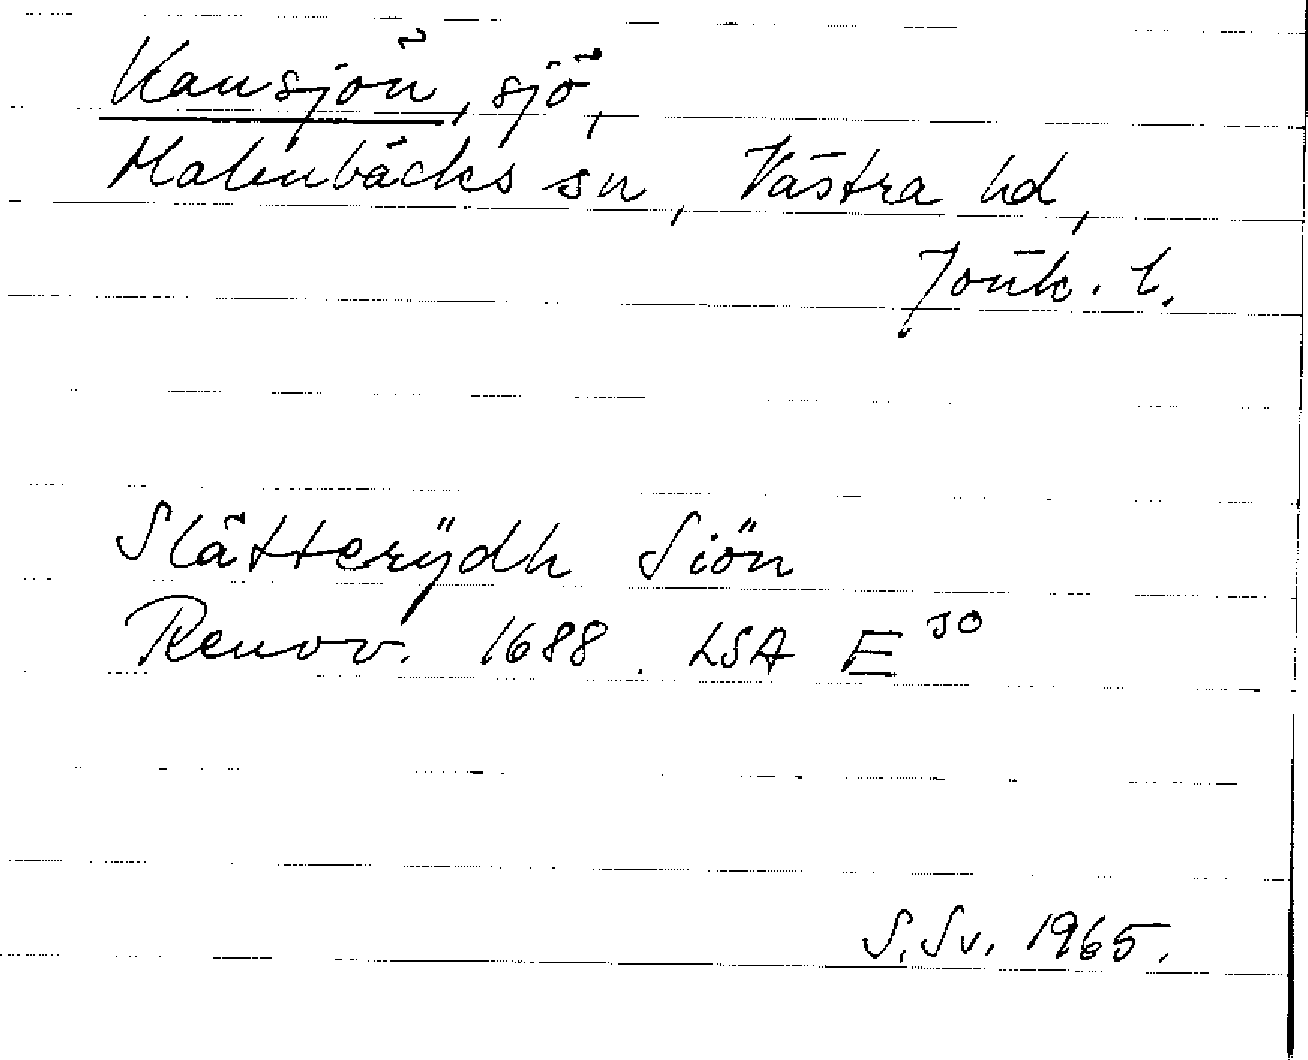 Kansjön, sjö,
Malmbäcks sn, Västra hd,
Jönk. l.
Slätterÿdh Siön
Renov. 1688. LSA E JO
S. Sv. 1965.